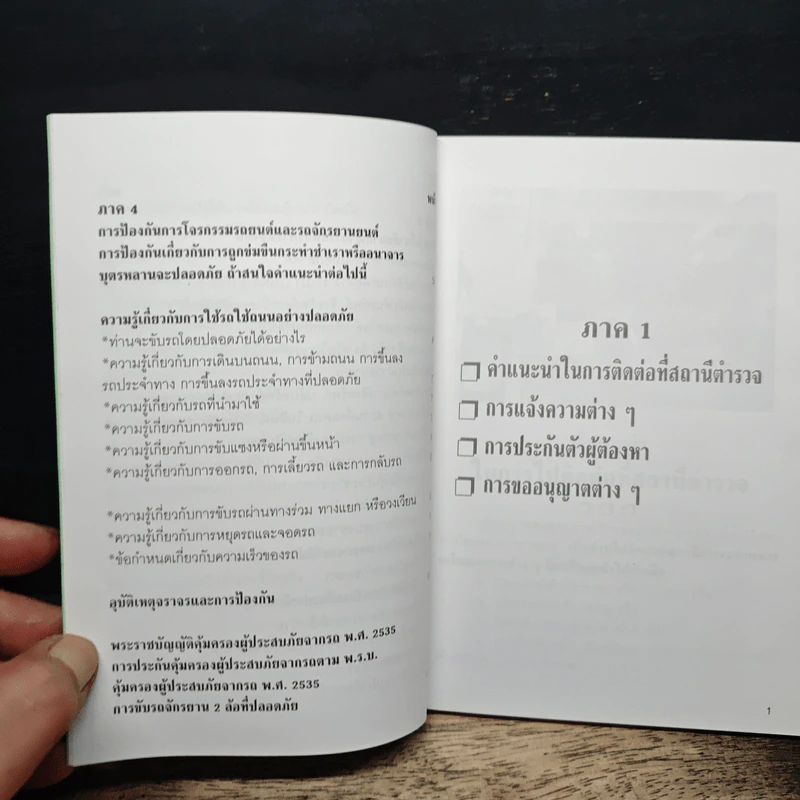 ภาค 4
การป้องกันการโจรกรรมรถยนต์และรถจักรยานยนต์
การป้องกันเกี่ยวกับการถูกข่มขืนกระทำชำเราหรืออนาจาร
บุตรหลานจะปลอดภัย ถ้าสนใจคำแนะนำต่อไปนี้
ความรู้เกี่ยวกับการใช้รถใช้ถนนอย่างปลอดภัย
*ท่านจะขับรถโดยปลอดภัยได้อย่างไร
*ความรู้เกี่ยวกับการเดินบนถนน, การข้ามถนน การขึ้นลง
รถประจำทาง การขึ้นลงรถประจำทางที่ปลอดภัย
*ความรู้เกี่ยวกับรถที่นำมาใช้
*ความรู้เกี่ยวกับการขับรถ
*ความรู้เกี่ยวกับการขับแซงหรือผ่านขึ้นหน้า
*ความรู้เกี่ยวกับการออกรถ, การเลี้ยวรถ และการกลับรถ
*ความรู้เกี่ยวกับการขับรถผ่านทางร่วม ทางแยก หรือวงเวียน
*ความรู้เกี่ยวกับการหยุดรถและจอดรถ
*ข้อกำหนดเกี่ยวกับความเร็วของรถ
อุบัติเหตุจราจรและการป้องกัน
พระราชบัญญัติคุ้มครองผู้ประสบภัยจากรถ พ.ศ. 2535
การประกันคุ้มครองผู้ประสบภัยจากรถตาม พ.ร.บ.
คุ้มครองผู้ประสบภัยจากรถ พ.ศ. 2535
การขับรถจักรยาน 2 ล้อที่ปลอดภัย
ภาค 1
คำแนะนำในการติดต่อที่สถานีตำรวจ
การแจ้งความต่าง ๆ
การประกันตัวผู้ต้องหา
การขออนุญาตต่าง ๆ
1